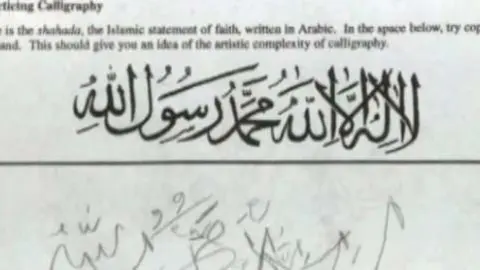 rticing Calligraphy
e is the shahada, the Islamic statement of faith, written in Arabic. In the space below, try cop
and. This should give you an idea of the artistic complexity of calligraphy.
لا إله إلا الله محمد رسول الله